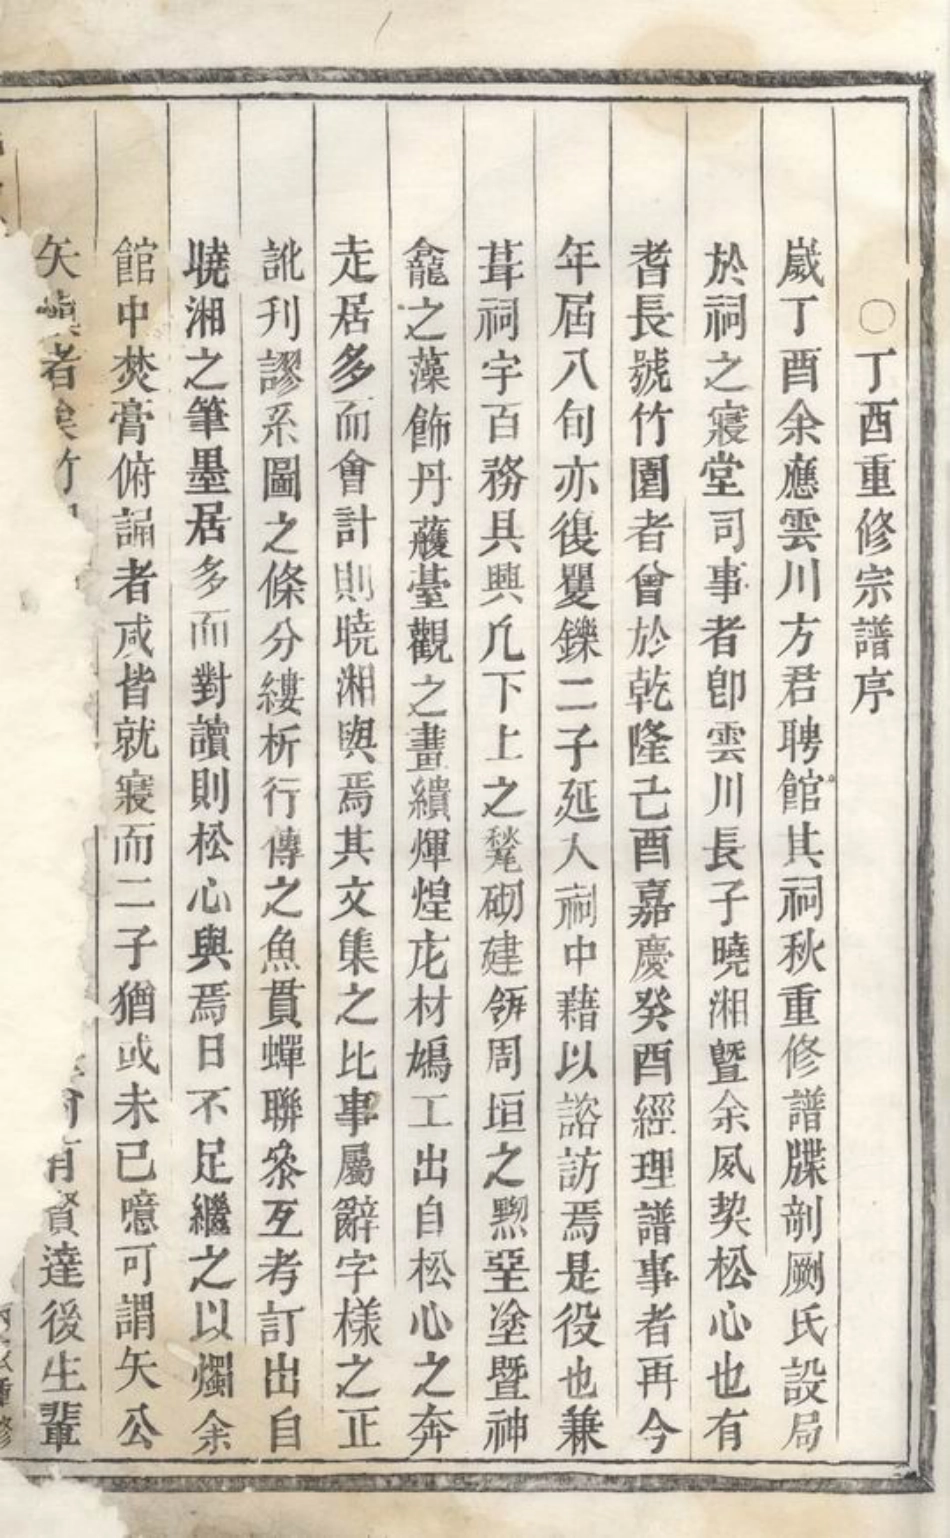 ○丁酉重修宗譜序
嵗丁酉余應雲川方君聘館其祠秋重修譜牒剞劂氏設局
於祠之寢堂司事者卽雲川長子曉湘曁余夙契松心也有
耆長號竹園者曾於乾隆己酉嘉慶癸酉經理譜事者再今
年屆八旬亦復矍鑠二子延入祠中藉以諮訪焉是役也兼
葺祠宇百務具興凢下上之甃砌建瓴周垣之黝堊塗曁神
龕之藻飾丹雘臺觀之畫繢煇煌庀材鳩工出自松心之奔
走居多而會計則曉湘與焉其文集之比事屬辭字樣之正
訛刋謬系圖之條分縷析行傳之魚貫蟬聯叅互考訂出自
曉湘之筆墨居多而對讀則松心與焉日不足繼之以燭余
館中焚膏俯誦者咸皆就寢而二子猶或未已噫可謂矢公
矢愼者矣竹
賢達後生輩
重修